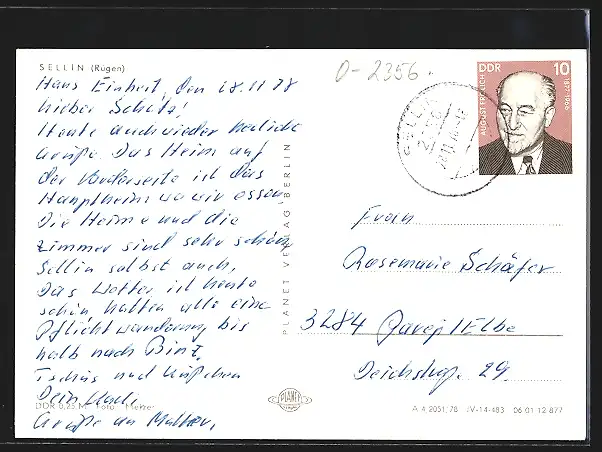 SELLIN (Rügen)
Haus Einheit, den 18.11.78
Lieber Schatz!
Heute auch wieder herzliche
Grüße. Das Heim auf
der Vorderseite ist das
Hauptheim wo wir essen.
Die Heime und die
Zimmer sind sehr schön,
Sellin selbst auch.
Das Wetter ist heute
schön hatten alle eine
Pflichtwanderung bis
halb nach Binz.
Tschüs und Küßchen
Dein
Grüße an Mutter.
DDR 0,25 M Foto: Melzer
PLANET VERLAG BERLIN
PLANET
0-2356
DDR 10
AUGUST FRÖLICH
1877-1966
Frau
Rosemarie Schäfer
3284 Barej/Elbe
Deichstraße 29.
A 4/2051/78 IV-14-483 06 01 12 877